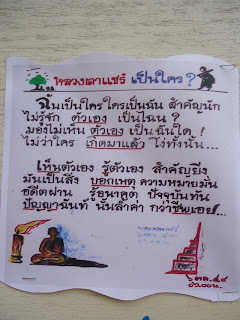 หลวงตาแชร์ เป็นใคร?
ฉันเป็นใครใครเป็นฉัน สำคัญนัก
ไม่รู้จัก ตัวเอง เป็นไฉน ?
มองไม่เห็น ตัวเอง เป็นฉันใด !
ไม่ว่าใคร เกิดมาแล้ว โง่ทั้งนั้น...
เห็นตัวเอง รู้ตัวเอง สำคัญยิ่ง
มันเป็นสิ่ง บอกเหตุ ความหมายมัน
อดีตผ่าน รู้อนาคต ปัจจุบันทัน
ปัญญานันท์ นั้นล้ำค่า กว่าชนเอย...